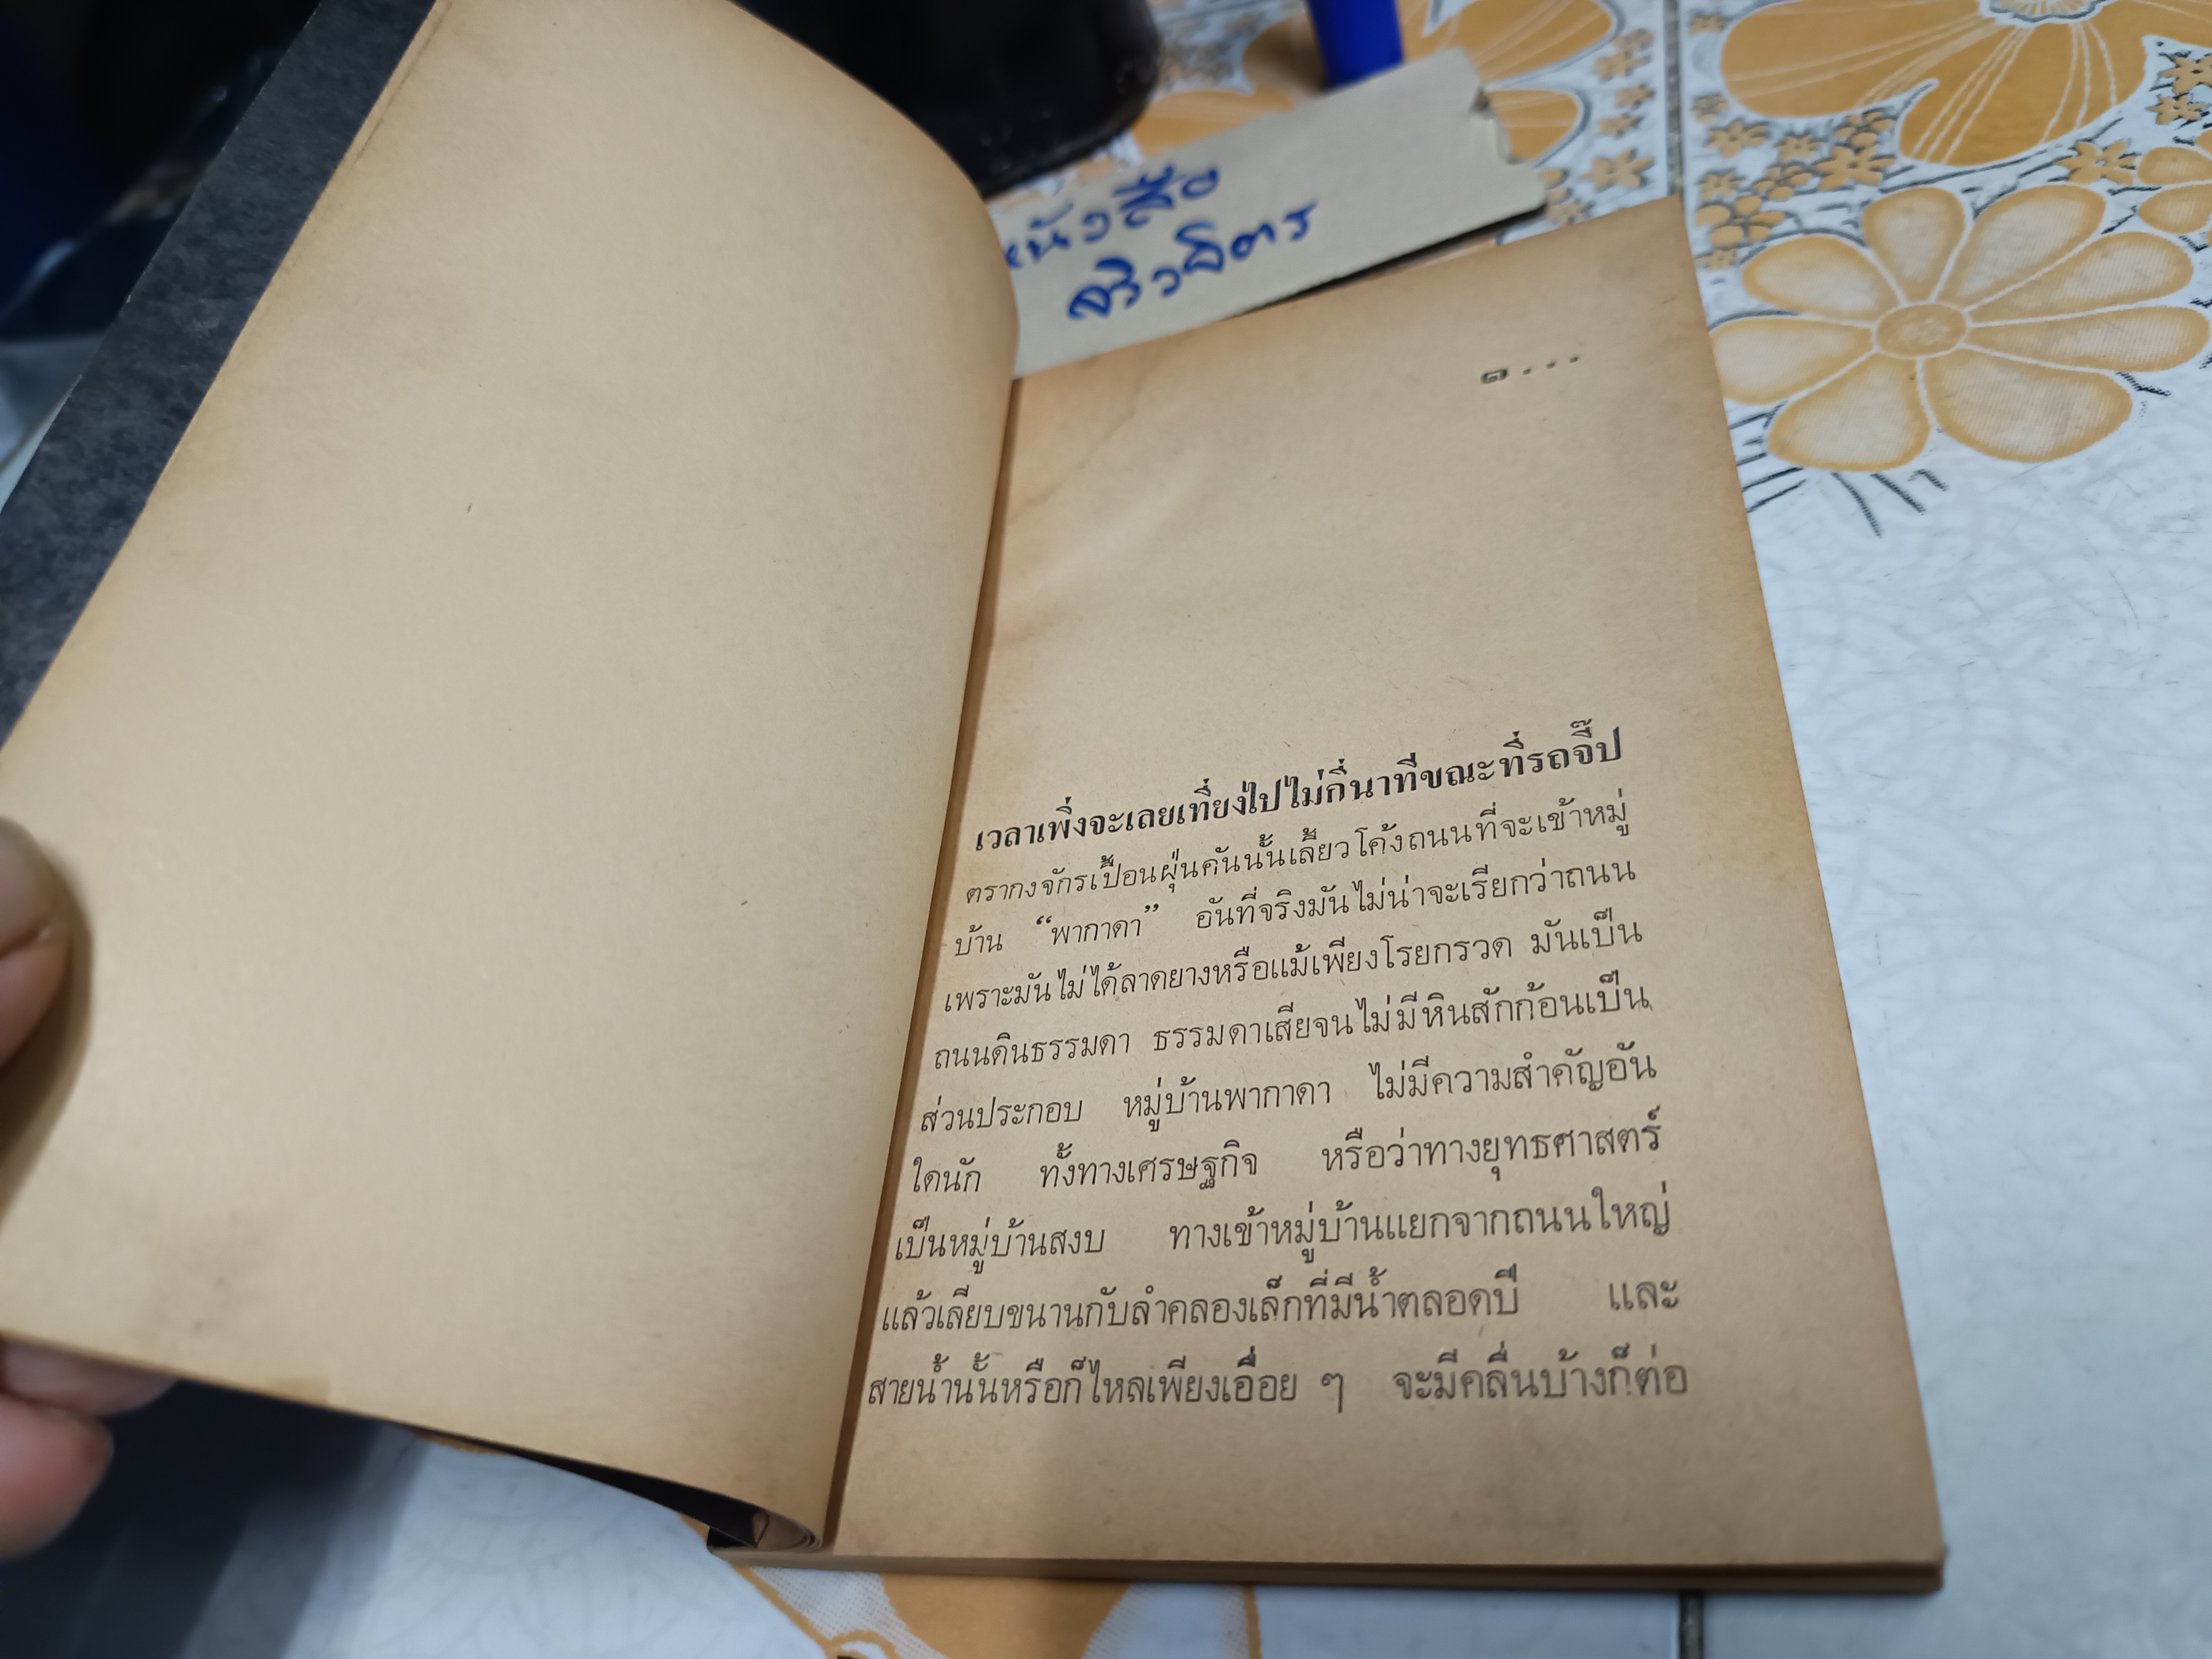 หนังสือ
จริวจิตร
๑...
เวลาเพิ่งจะเลยเที่ยงไปไม่กี่นาทีขณะที่รถจี๊ป
ตรากงจักรเปื้อนฝุ่นคันนั้นเลี้ยวโค้งถนนที่จะเข้าหมู่
บ้าน “พากาดา” อันที่จริงมันไม่น่าจะเรียกว่าถนน
เพราะมันไม่ได้ลาดยางหรือแม้เพียงโรยกรวด มันเป็น
ถนนดินธรรมดา ธรรมดาเสียจนไม่มีหินสักก้อนเป็น
ส่วนประกอบ หมู่บ้านพากาดา ไม่มีความสำคัญอัน
ใดนัก ทั้งทางเศรษฐกิจ หรือว่าทางยุทธศาสตร์
เป็นหมู่บ้านสงบ ทางเข้าหมู่บ้านแยกจากถนนใหญ่
แล้วเลียบขนานกับลำคลองเล็กที่มีน้ำตลอดปี และ
สายน้ำนั้นหรือก็ไหลเพียงเอื่อย ๆ จะมีคลื่นบ้างก็ต่อ